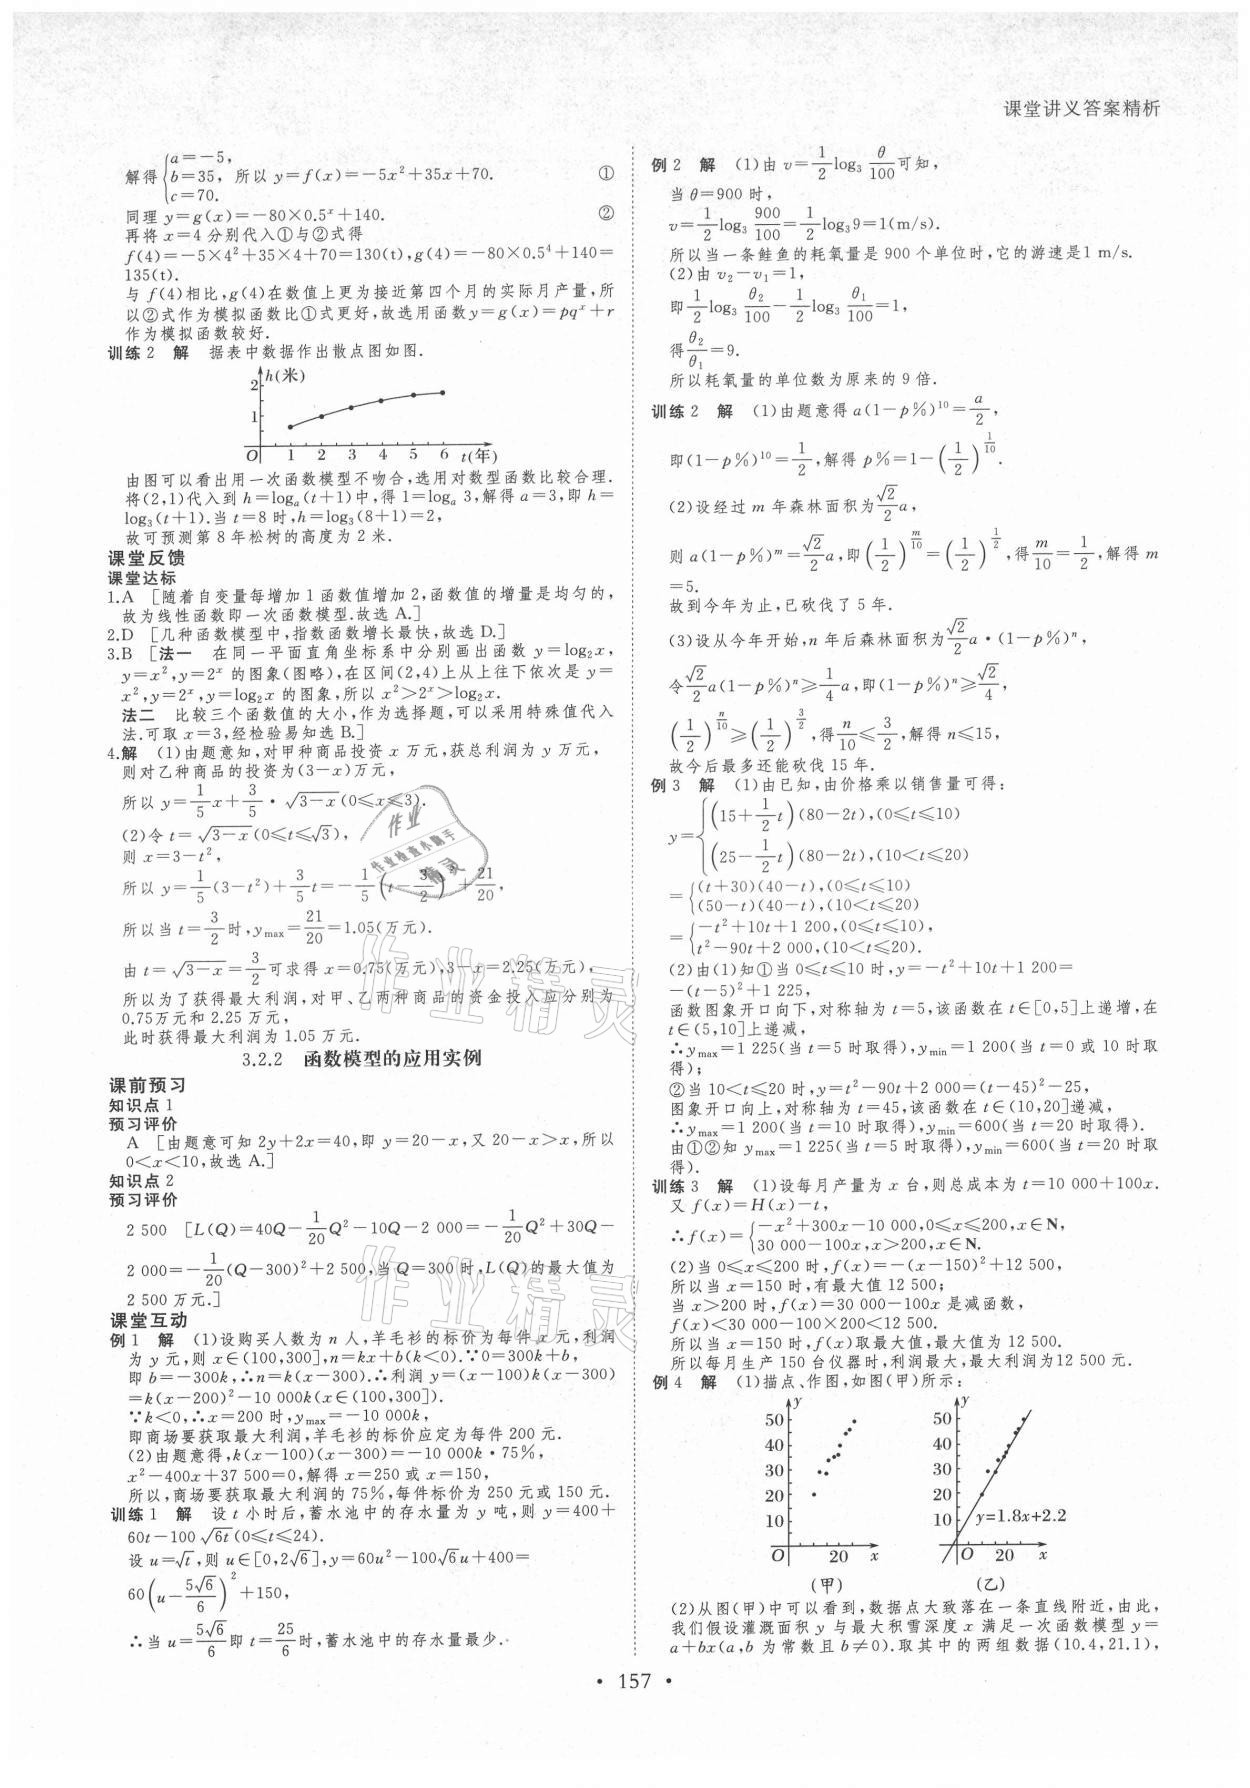 课堂讲义答案精析
解得{a=-5, b=35, c=70. 所以 y=f(x)=-5x²+35x+70. ①
同理 y=g(x)=-80×0.5ˣ+140. ②
再将 x=4 分别代入①与②式得
f(4)=-5×4²+35×4+70=130(t),g(4)=-80×0.5⁴+140=
135(t).
与 f(4)相比,g(4)在数值上更为接近第四个月的实际月产量,所
以②式作为模拟函数比①式更好,故选用函数y=g(x)=pqˣ+r
作为模拟函数较好.
训练2 解 据表中数据作出散点图如图.
h(米)
2
1
O 1 2 3 4 5 6 t(年)
由图可以看出用一次函数模型不吻合,选用对数型函数比较合理.
将(2,1)代入到 h=logₐ(t+1)中,得 1=logₐ 3,解得 a=3,即 h=
log₃(t+1).当 t=8 时,h=log₃(8+1)=2,
故可预测第 8 年松树的高度为 2 米.
课堂反馈
课堂达标
1.A [随着自变量每增加 1 函数值增加 2,函数值的增量是均匀的,
故为线性函数即一次函数模型.故选 A.]
2.D [几种函数模型中,指数函数增长最快,故选 D.]
3.B [法一 在同一平面直角坐标系中分别画出函数 y=log₂x,
y=x²,y=2ˣ 的图象(图略),在区间(2,4)上从上往下依次是 y=
x²,y=2ˣ,y=log₂x 的图象,所以 x²>2ˣ>log₂x.
法二 比较三个函数值的大小,作为选择题,可以采用特殊值代入
法.可取 x=3,经检验易知选 B.]
4.解 (1)由题意知,对甲种商品投资 x 万元,获总利润为 y 万元,
则对乙种商品的投资为(3-x)万元,
所以 y=1/5 x+3/5·√(3-x)(0≤x≤3).
(2)令 t=√(3-x)(0≤t≤√3),
则 x=3-t²,
所以 y=1/5(3-t²)+3/5 t=-1/5(t-3/2)²+21/20,
所以当 t=3/2 时,yₘₐₓ=21/20=1.05(万元).
由 t=√(3-x)=3/2 可求得 x=0.75(万元),3-x=2.25(万元),
所以为了获得最大利润,对甲、乙两种商品的资金投入应分别为
0.75万元和 2.25 万元,
此时获得最大利润为 1.05 万元.
3.2.2 函数模型的应用实例
课前预习
知识点 1
预习评价
A [由题意可知 2y+2x=40,即 y=20-x,又 20-x>x,所以
0<x<10,故选 A.]
知识点 2
预习评价
2 500 [L(Q)=40Q-1/20 Q²-10Q-2 000=-1/20 Q²+30Q-
2 000=-1/20(Q-300)²+2 500,当 Q=300 时,L(Q)的最大值为
2 500 万元.]
课堂互动
例 1 解 (1)设购买人数为 n 人,羊毛衫的标价为每件 x 元,利润
为 y 元,则 x∈(100,300],n=kx+b(k<0).∵0=300k+b,
即 b=-300k,∴n=k(x-300).∴利润 y=(x-100)k(x-300)
=k(x-200)²-10 000k(x∈(100,300]).
∵k<0,∴x=200 时,yₘₐₓ=-10 000k,
即商场要获取最大利润,羊毛衫的标价应定为每件 200 元.
(2)由题意得,k(x-100)(x-300)=-10 000k·75%,
x²-400x+37 500=0,解得 x=250 或 x=150,
所以,商场要获取最大利润的 75%,每件标价为 250 元或 150 元.
训练1 解 设 t 小时后,蓄水池中的存水量为 y 吨,则 y=400+
60t-100√(6t)(0≤t≤24).
设 u=√t,则 u∈[0,2√6],y=60u²-100√6u+400=
60(u-5√6/6)²+150,
∴当 u=5√6/6 即 t=25/6 时,蓄水池中的存水量最少.
例 2 解 (1)由 v=1/2 log₃ θ/100 可知,
当 θ=900 时,
v=1/2 log₃ 900/100=1/2 log₃9=1(m/s).
所以当一条鲑鱼的耗氧量是 900 个单位时,它的游速是1 m/s.
(2)由 v₂-v₁=1,
即 1/2 log₃ θ₂/100-1/2 log₃ θ₁/100=1,
得θ₂/θ₁=9.
所以耗氧量的单位数为原来的 9 倍.
训练2 解 (1)由题意得 a(1-p%)¹⁰=a/2,
即(1-p%)¹⁰=1/2,解得 p%=1-(1/2)^(1/10).
(2)设经过 m 年森林面积为√2/2 a,
则 a(1-p%)ᵐ=√2/2 a,即(1/2)^(m/10)=(1/2)^(1/2),得m/10=1/2,解得 m
=5.
故到今年为止,已砍伐了 5 年.
(3)设从今年开始,n 年后森林面积为√2/2 a·(1-p%)ⁿ,
令√2/2 a(1-p%)ⁿ≥1/4 a,即(1-p%)ⁿ≥√2/4,
(1/2)^(n/10)≥(1/2)^(3/2),得n/10≤3/2,解得 n≤15,
故今后最多还能砍伐 15 年.
例 3 解 (1)由已知,由价格乘以销售量可得:
y={(15+1/2 t)(80-2t),(0≤t≤10)
(25-1/2 t)(80-2t),(10<t≤20)
={(t+30)(40-t),(0≤t≤10)
(50-t)(40-t),(10<t≤20)
={-t²+10t+1 200,(0≤t≤10),
t²-90t+2 000,(10<t≤20).
(2)由(1)知①当 0≤t≤10 时,y=-t²+10t+1 200=
-(t-5)²+1 225,
函数图象开口向下,对称轴为 t=5,该函数在 t∈[0,5]上递增,在
t∈(5,10]上递减,
∴yₘₐₓ=1 225(当 t=5 时取得),yₘᵢₙ=1 200(当 t=0 或 10 时取
得);
②当 10<t≤20 时,y=t²-90t+2 000=(t-45)²-25,
图象开口向上,对称轴为 t=45,该函数在 t∈(10,20]递减,
∴yₘₐₓ=1 200(当 t=10 时取得),yₘᵢₙ=600(当 t=20 时取得).
由①②知 yₘₐₓ=1 225(当 t=5 时取得),yₘᵢₙ=600(当 t=20 时取
得).
训练 3 解 (1)设每月产量为 x 台,则总成本为 t=10 000+100x.
又 f(x)=H(x)-t,
∴f(x)={-x²+300x-10 000,0≤x≤200,x∈N,
30 000-100x,x>200,x∈N.
(2)当 0≤x≤200 时,f(x)=-(x-150)²+12 500,
所以当 x=150 时,有最大值 12 500;
当 x>200 时,f(x)=30 000-100x 是减函数,
f(x)<30 000-100×200<12 500.
所以当 x=150 时,f(x)取最大值,最大值为 12 500.
所以每月生产 150 台仪器时,利润最大,最大利润为12 500 元.
例 4 解 (1)描点、作图,如图(甲)所示:
y 50 40 30 20 10 O 20 x
(甲)
y 50 40 30 20 10 y=1.8x+2.2 O 20 x
(乙)
(2)从图(甲)中可以看到,数据点大致落在一条直线附近,由此,
我们假设灌溉面积 y 与最大积雪深度 x 满足一次函数模型 y=
a+bx(a,b 为常数且 b≠0).取其中的两组数据(10.4,21.1),
• 157 •
作业
作业检查小助手
精灵
作业精灵
作业精灵